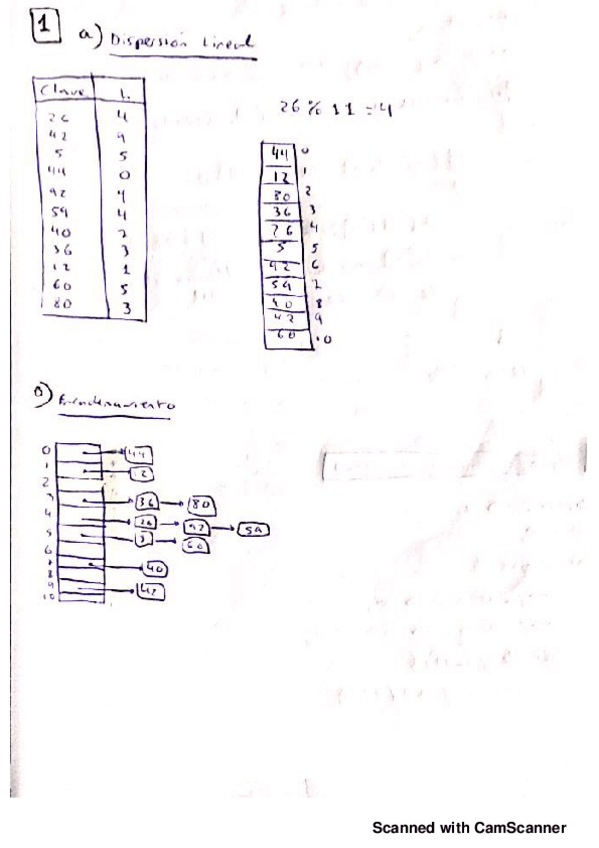 1 a) Dispersión Lineal
Clave L
26 4
42 9
5 5
44 0
92 4
59 4
40 7
36 3
12 1
60 5
80 3
26 % 11 = 4
44 0
12 1
80 2
36 3
26 4
5 5
92 6
59 7
40 8
42 9
60 10
b) Encadenamiento
0 44
1 12
2
3 36 80
4 26 92 59
5 5 60
6
7 40
8
9 42
10
Scanned with CamScanner